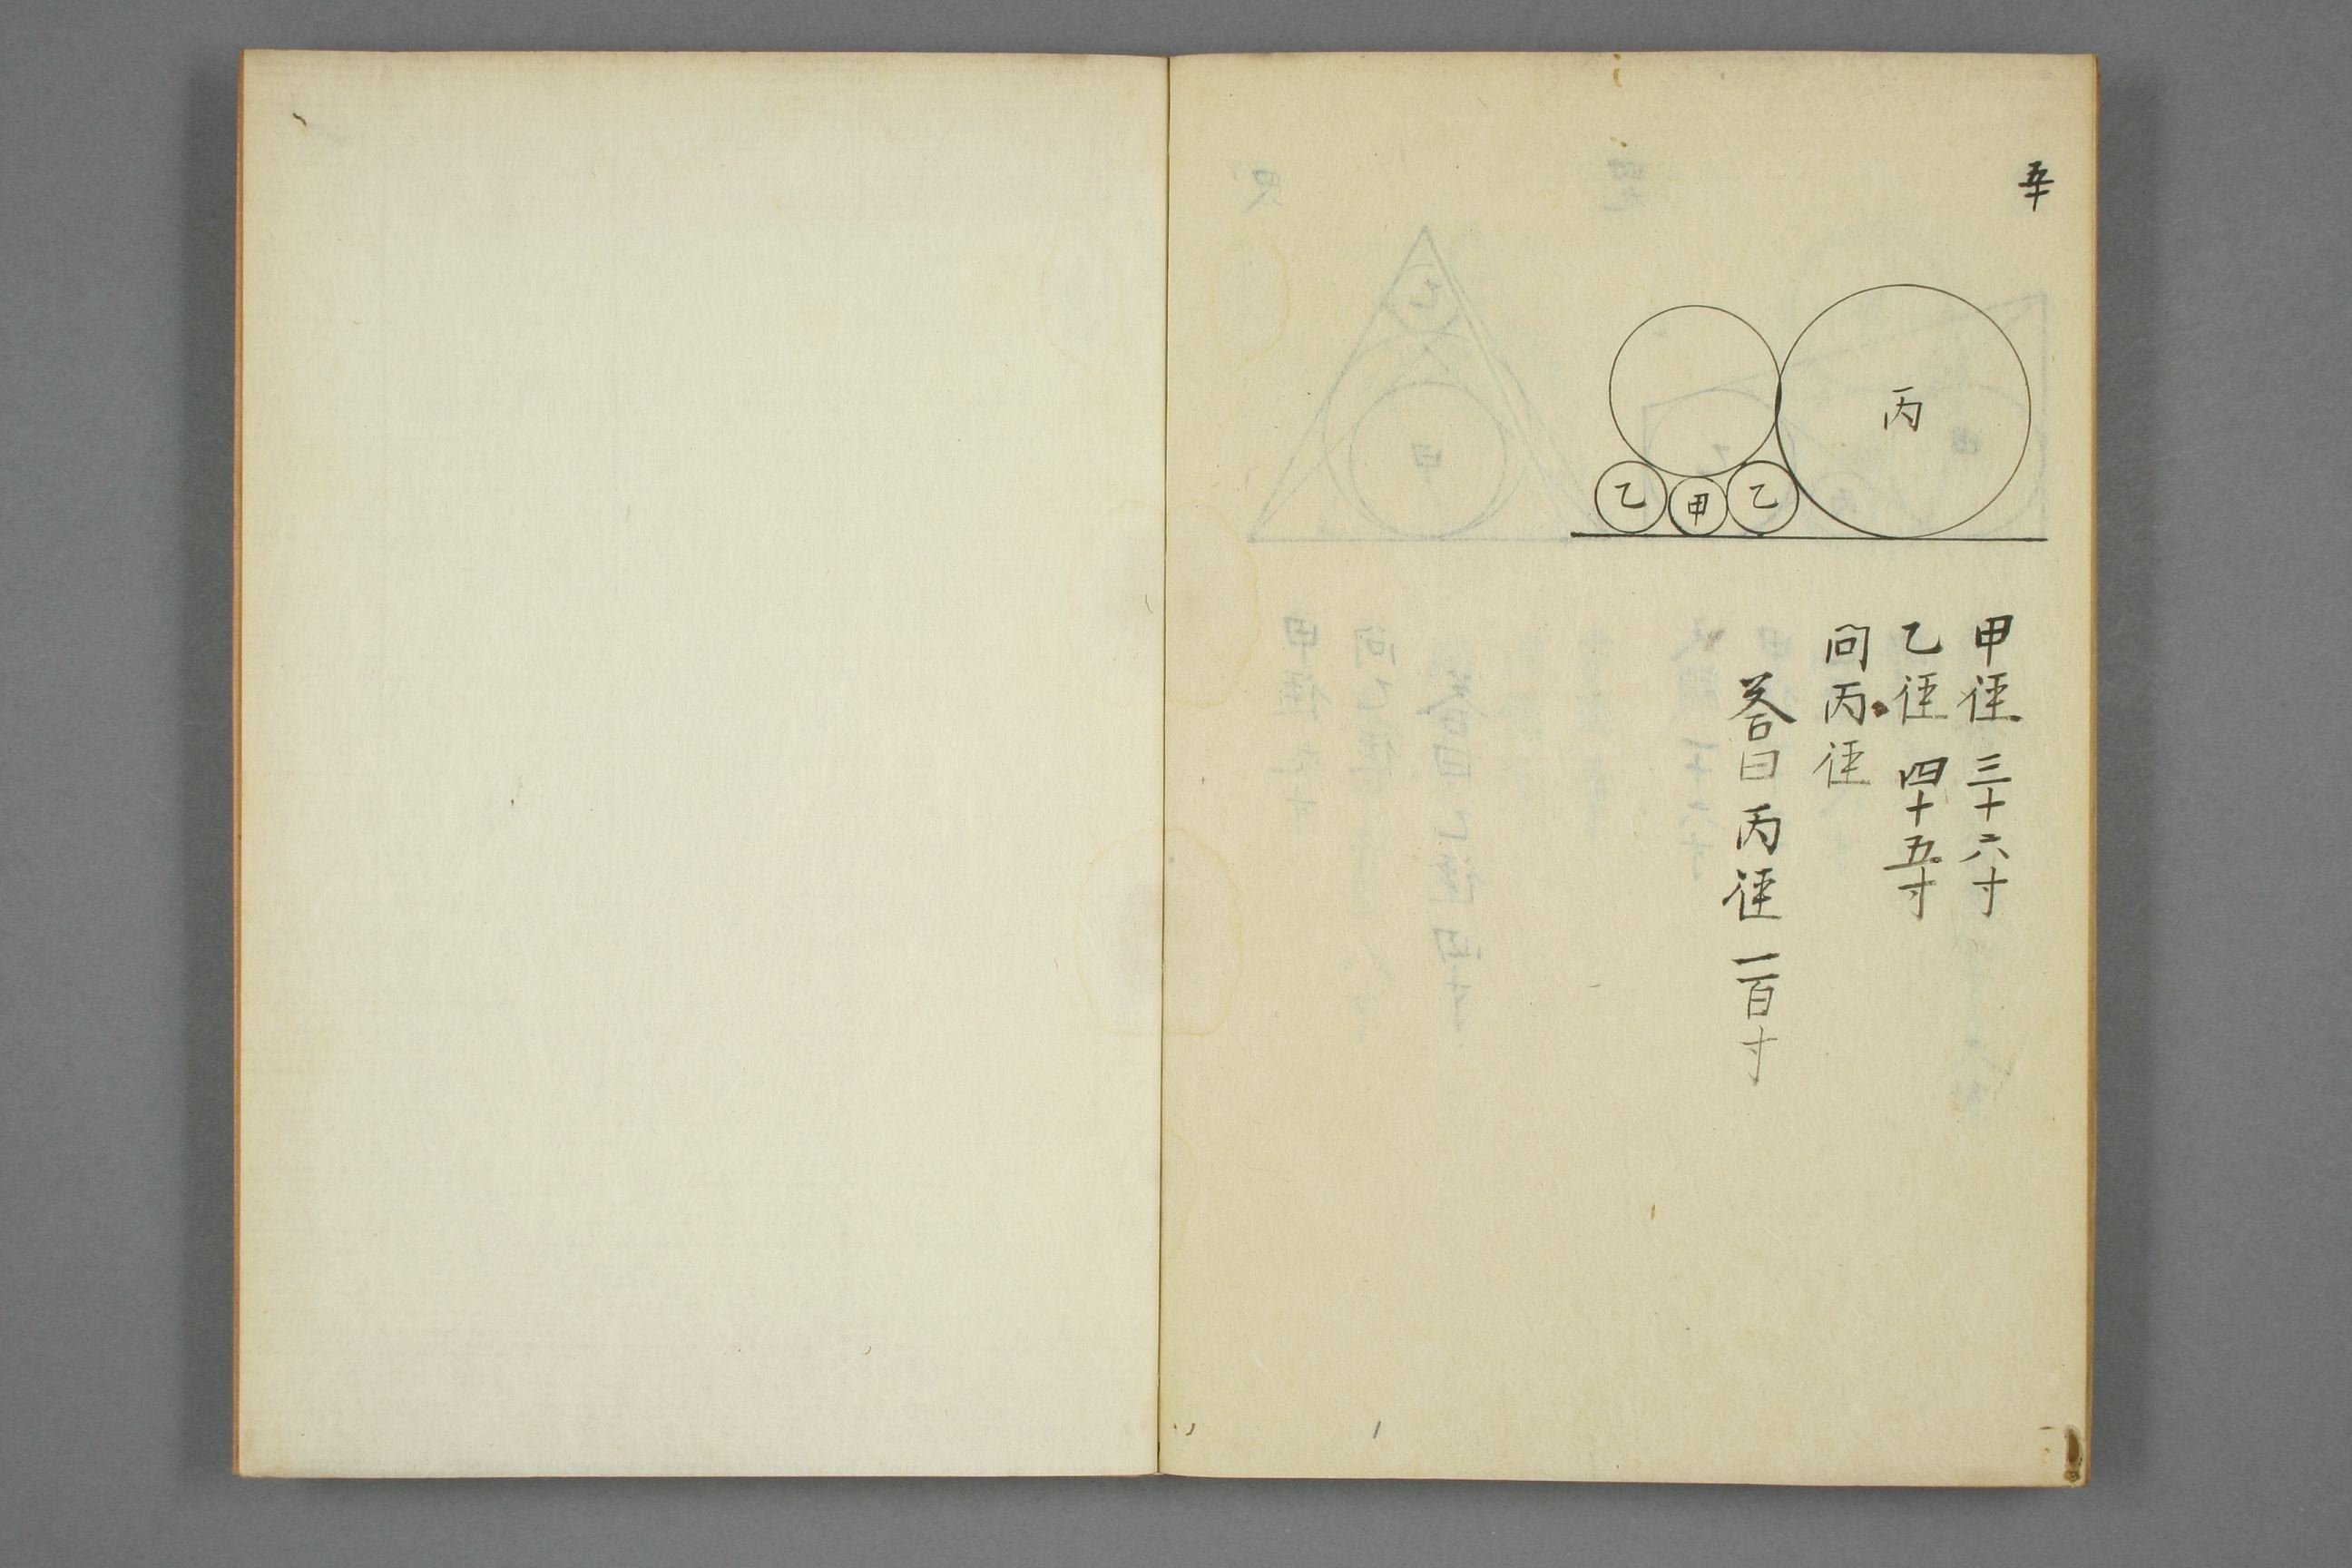 五十
丙
乙
甲
乙
甲径 三十六寸
乙径 四十五寸
問丙径
答曰 丙径 一百寸